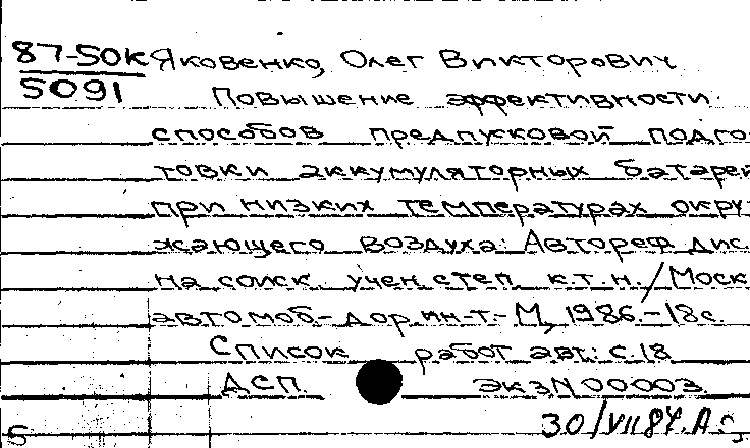 87-50к Яковенко, Олег Викторович
5091 Повышение эффективности
способов предпусковой подго
товки аккумуляторных батарей
при низких температурах окру
жающего воздуха: Автореф дис.
на соиск. учен. степ. к.т.н./Моск
автомоб-дор. ин-т.- М, 1986.-18с.
Список работ авт.: с.18
ДСП. экз N 00003
30/VII 87.
5